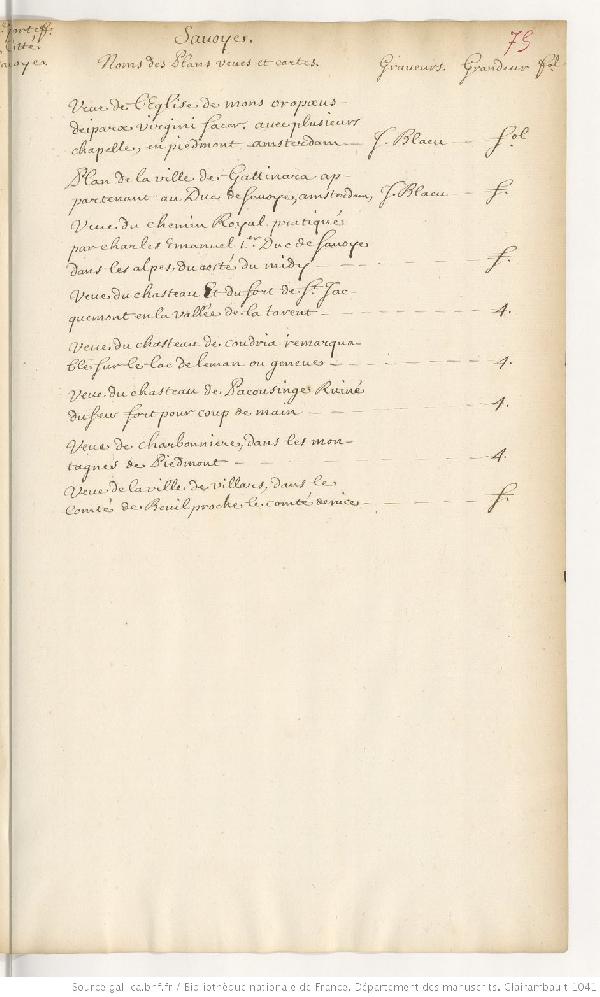 Savoyes.
75
Noms des Plans veues et cartes. Graveurs. Grandeur fol.
Veue de l'Eglise de mons oropæus
deiparæ virgini sacer. avec plusieurs
chapelle, en piedmont amsterdam — J. Blaeu — fol
Plan de la ville de Gattinara ap-
partenant au Duc de Savoye, amsterdam, J. Blaeu — f.
Veue du chemin Royal pratiqué
par charles Emanuel 1.er Duc de Savoye
dans les alpes, du costé du midy — f.
Veue du chasteau Et du fort de St. Jac-
quemont en la vallée de la tarent — 4.
Veue du chasteau de coudria remarqua-
ble sur le lac de leman ou geneve — 4.
Veue du chasteau de Pacousinge Ruiné
du feu fort pour coup de main — 4.
Veue de charbonniere, dans les mon-
tagnes de Piedmont — 4.
Veue de la ville de villars, dans le
Comté de Beuil proche le comté de nice — f.
Source gallica.bnf.fr / Bibliothèque nationale de France. Département des manuscrits. Clairambault 1041